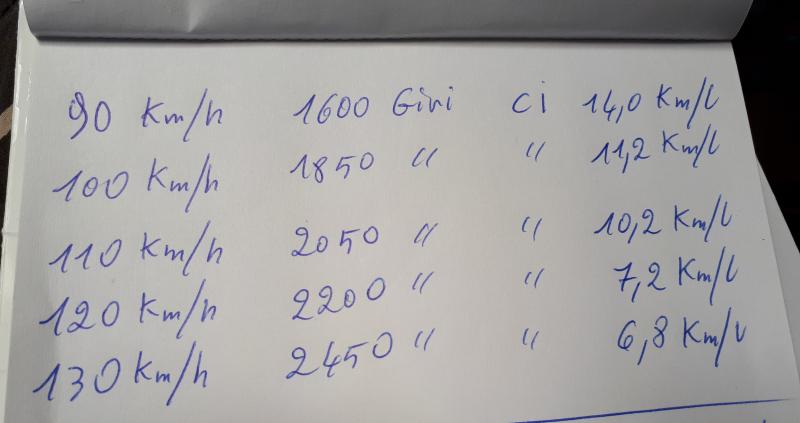 90 Km/h 1600 Giri Ci 14,0 Km/l
100 Km/h 1850 " " 11,2 Km/l
110 Km/h 2050 " " 10,2 Km/l
120 Km/h 2200 " " 7,2 Km/l
130 Km/h 2450 " " 6,8 Km/l